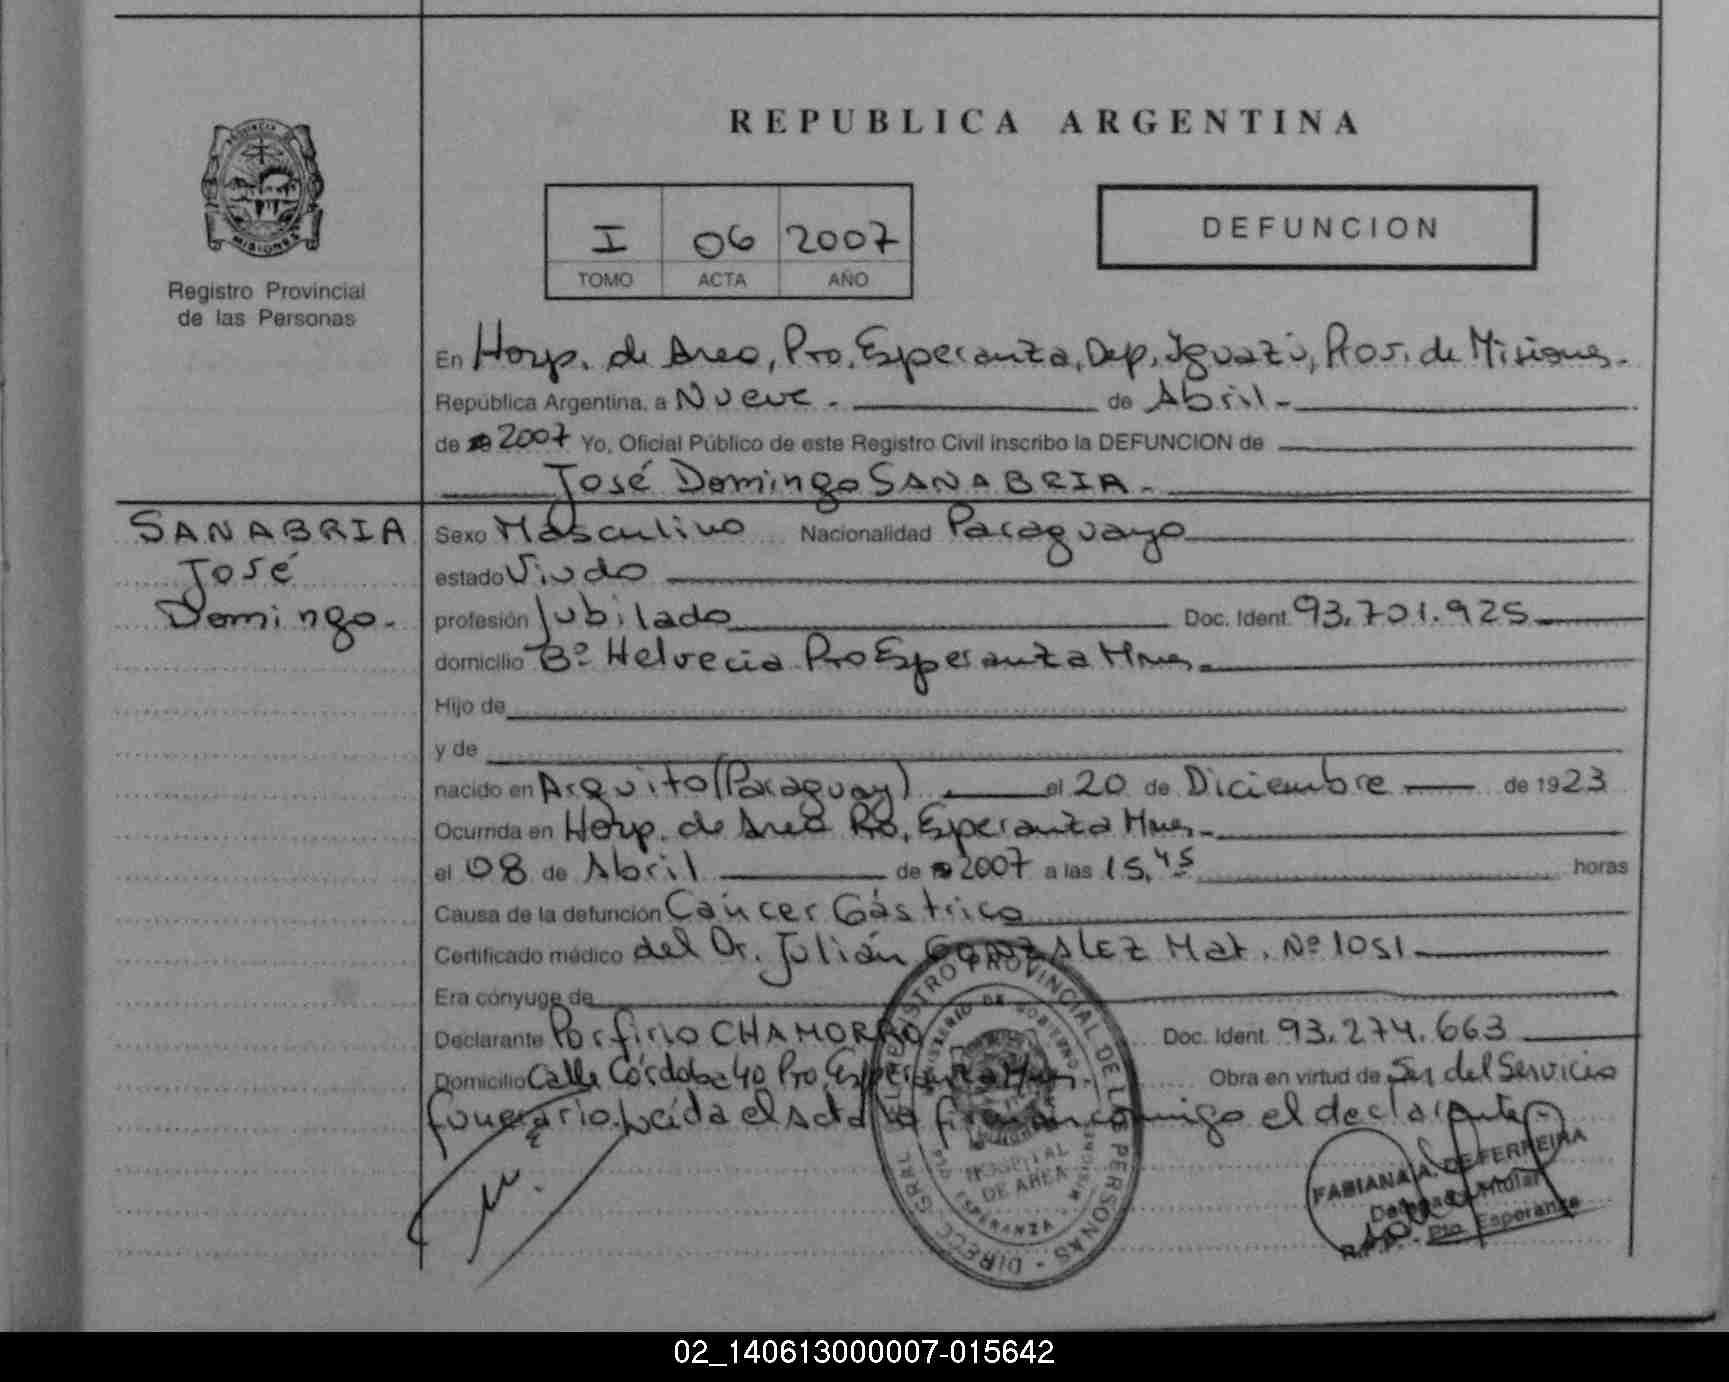 REPUBLICA ARGENTINA
PROVINCIA DE
MISIONES
Registro Provincial
de las Personas
I 06 2007
TOMO ACTA AÑO
DEFUNCION
En Hosp. de Area, Pto. Esperanza, Dep. Iguazú, Prov. de Misiones.
República Argentina, a Nueve. de Abril
de 2007 Yo, Oficial Público de este Registro Civil inscribo la DEFUNCION de
José Domingo SANABRIA.
SANABRIA
José
Domingo.
Sexo Masculino Nacionalidad Paraguayo
estado Viudo
profesión Jubilado Doc. Ident. 93.701.925
domicilio Bº Helvecia Pto Esperanza Mnes.
Hijo de
y de
nacido en Arquito (Paraguay) el 20 de Diciembre de 1923
Ocurrida en Hosp. de Area Pto. Esperanza Mnes.
el 08 de Abril de 2007 a las 15,45 horas
Causa de la defunción Cáncer Gástrico
Certificado médico del Dr. Julián GONZALEZ Mat. Nº 1051
Era cónyuge de
Declarante Porfirio CHAMORRO Doc. Ident. 93.274.663
Domicilio Calle Córdoba 40 Pto. Esperanza Mnes. Obra en virtud de Ser del Servicio
funerario. Leída el acta la firma conmigo el declarante.
REGISTRO PROVINCIAL DE LAS PERSONAS - DIRECC. GRAL.
MINISTERIO DE GOBIERNO
HOSPITAL
DE AREA
PTO. ESPERANZA - MISIONES
FABIANA A. DE FERREIRA
Delegada Titular
R.P.P. - Pto. Esperanza
02_140613000007-015642